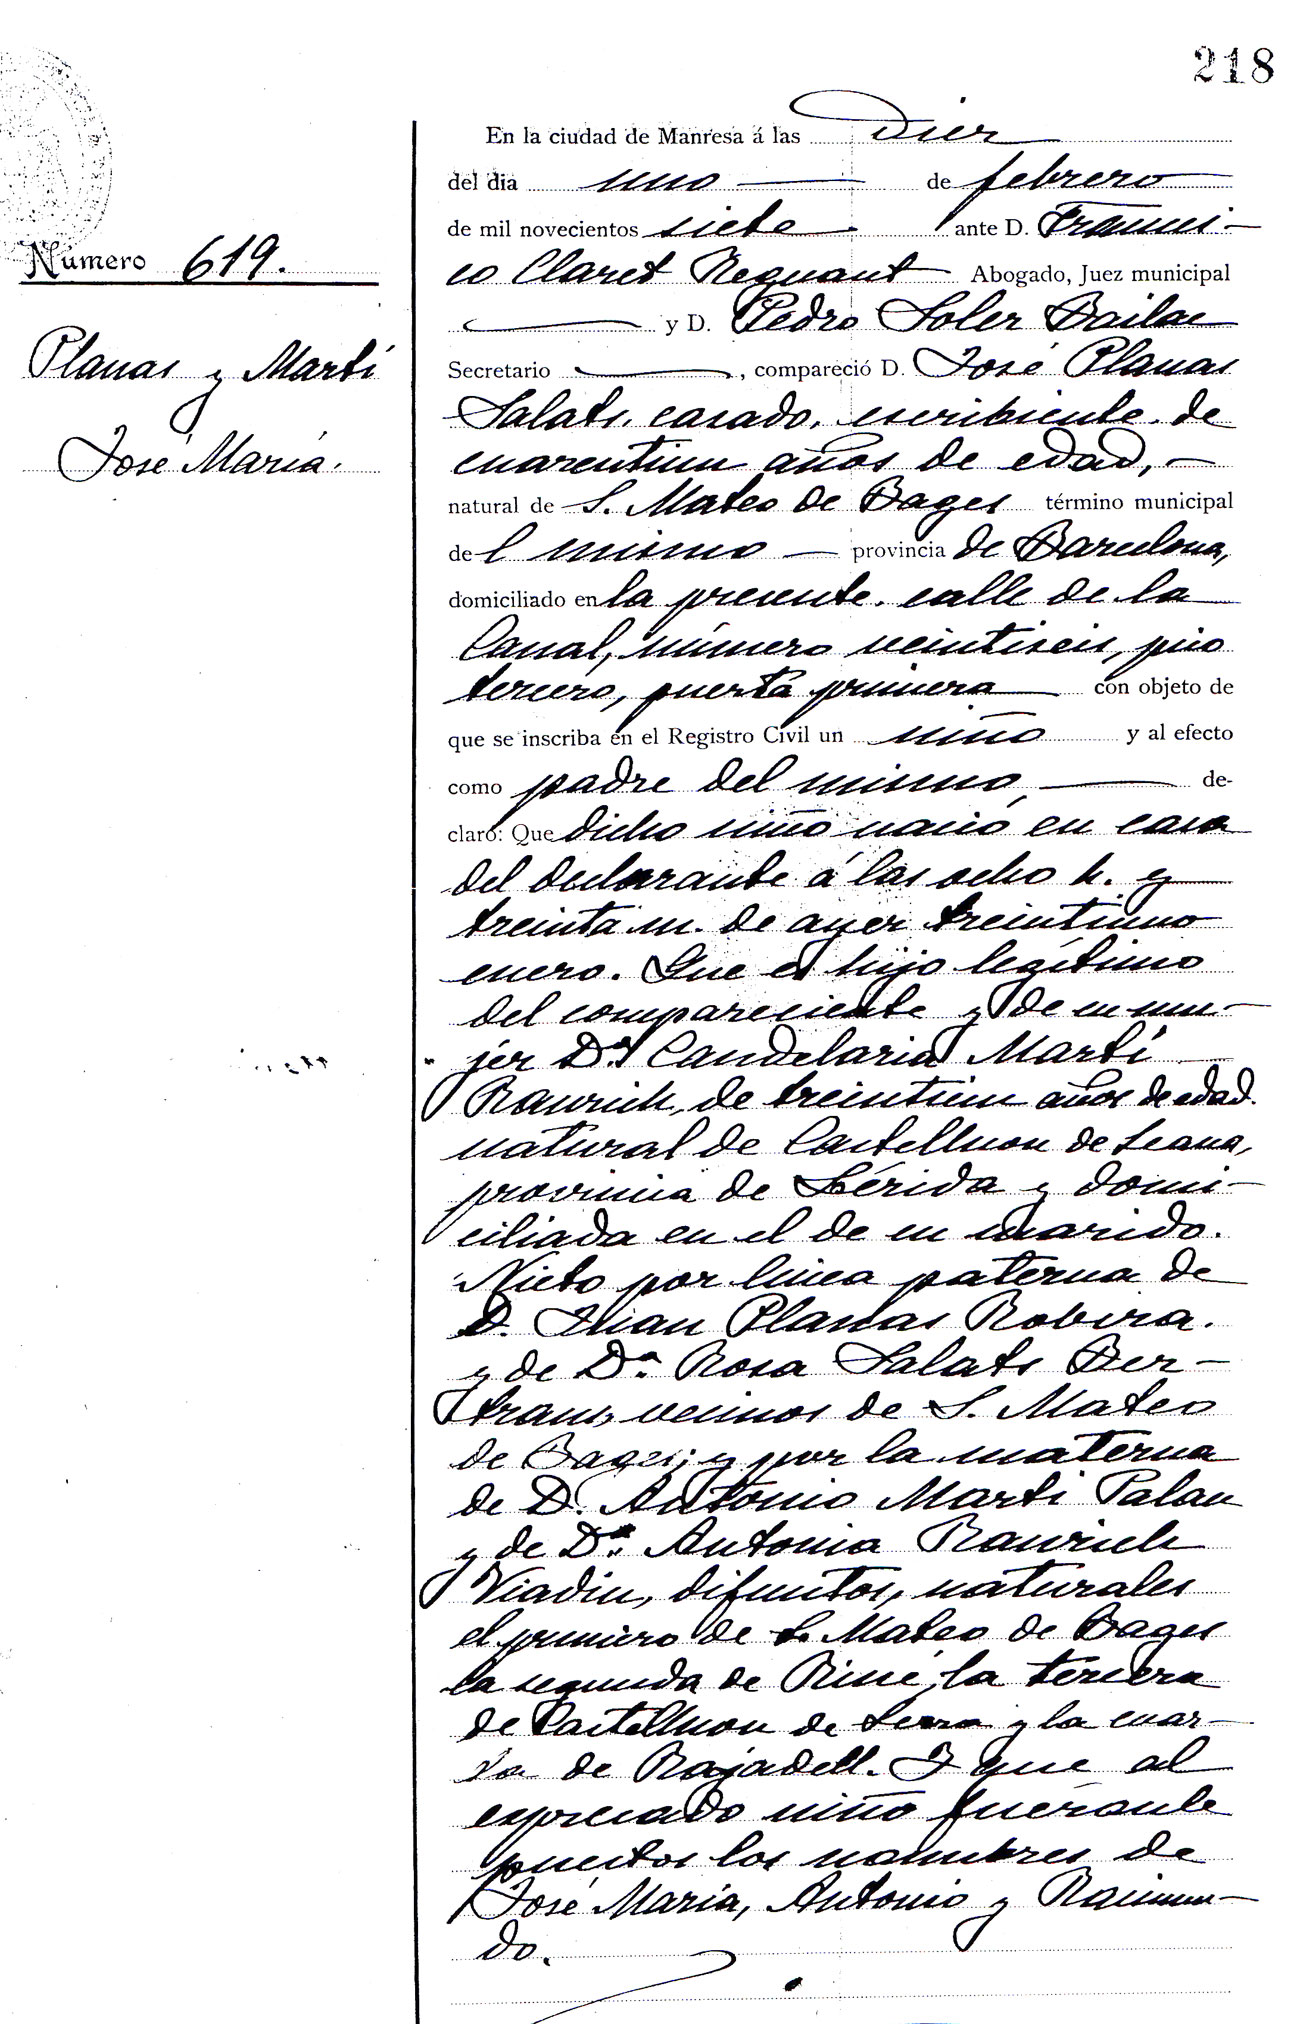 218
En la ciudad de Manresa á las diez
del dia uno de febrero
de mil novecientos siete ante D. Francis-
Número 619.
co Claret Reguant Abogado, Juez municipal
y D. Pedro Soler
Planas y Martí
Secretario, compareció D. José Planas
Salats, casado, escribiente, de
José María.
cuarentiun años de edad,
natural de S. Mateo de Bages término municipal
del mismo provincia de Barcelona,
domiciliado en la presente, calle de la
Canal, número veintiseis, piso
tercero, puerta primera con objeto de
que se inscriba en el Registro Civil un niño y al efecto
como padre del mismo, de-
claró: Que dicho niño nació en casa
del declarante á las ocho h. y
treinta m. de ayer treintiuno
enero. Que es hijo legítimo
del compareciente y de su mu-
jer Dª Candelaria Martí
Raurich, de treintiun años de edad.
natural de de
provincia de Lérida y domi-
ciliada en el de su marido.
Nieto por linea paterna de
D. Juan Planas Rovira.
y de Dª Rosa Salats Ber-
trans, vecinos de S. Mateo
de Bages; y por la materna
de D. Antonio Marti Palau
y de Dª Antonia Raurich
Viadiu, difuntos, naturales
el primero de S. Mateo de Bages
la segunda de la tercera
de de y la cuar-
ta de Rajadell. Y que al
expresado niño fueronle
puestos los nombres de
José María, Antonio y Raimun-
do.